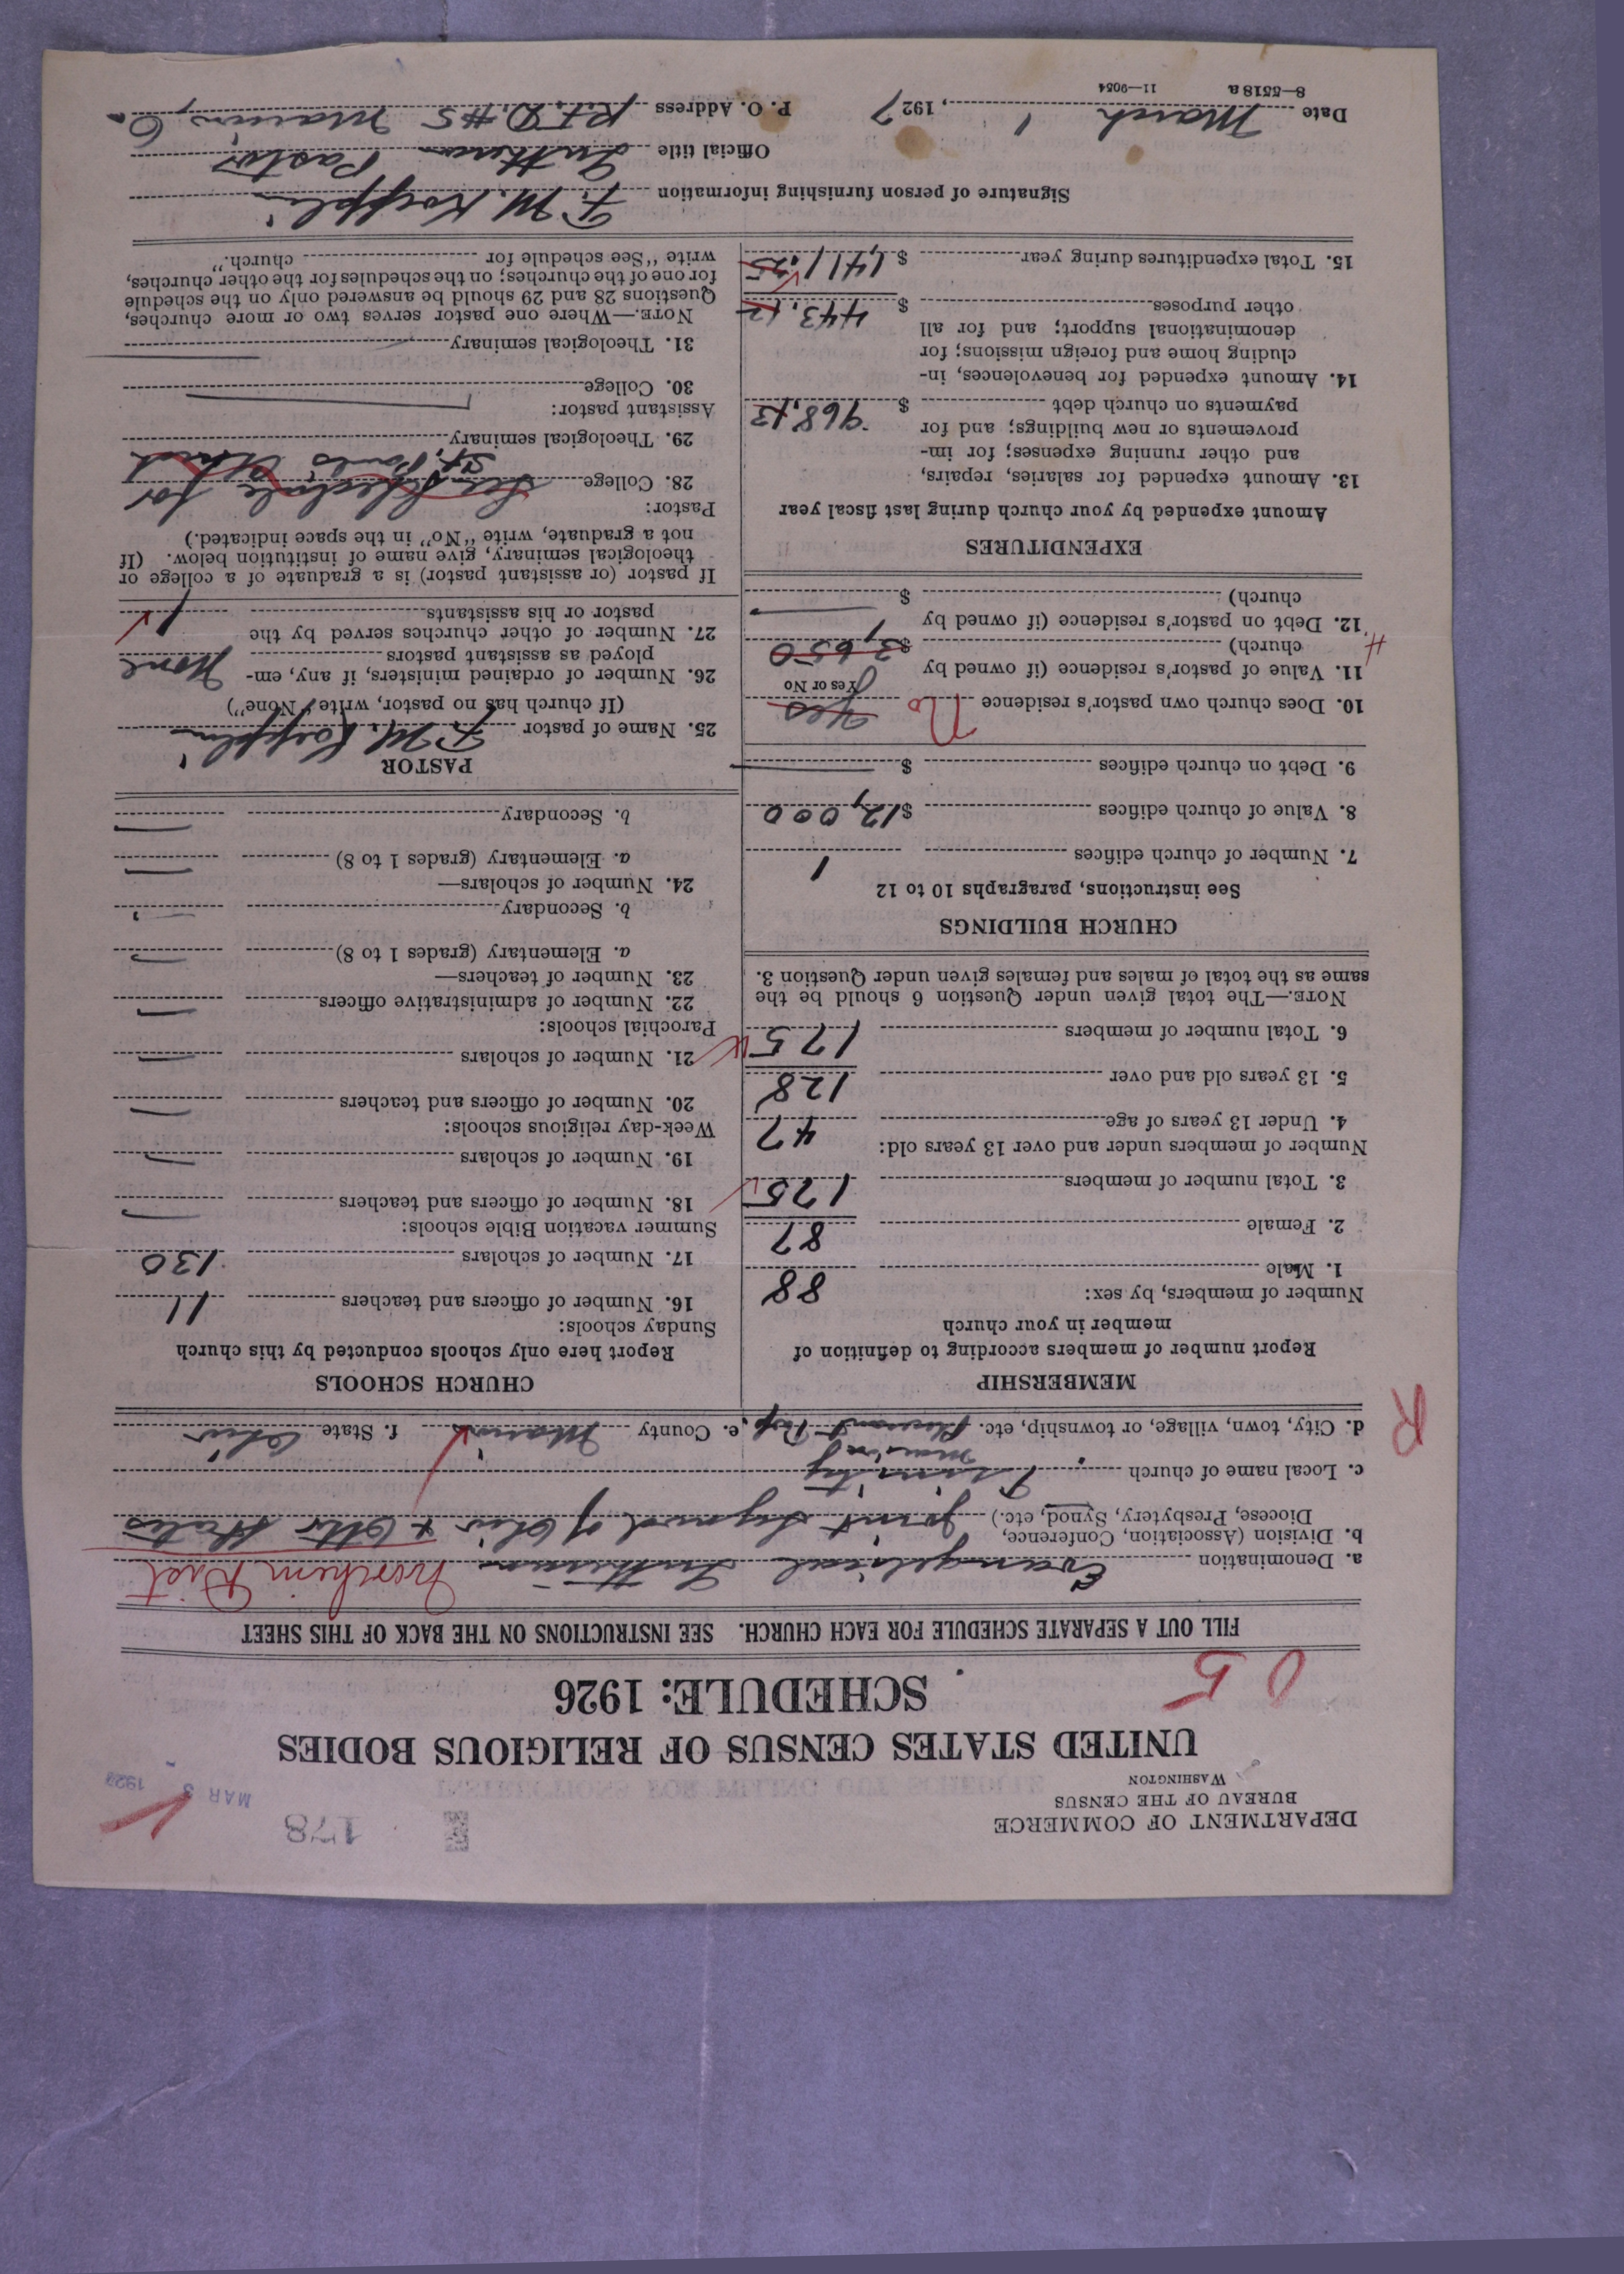 DEPARTMENT OF COMMERCE
BUREAU OF THE CENSUS
WASHINGTON
178
MAR 3 1927
UNITED STATES CENSUS OF RELIGIOUS BODIES
SCHEDULE: 1926
05
FILL OUT A SEPARATE SCHEDULE FOR EACH CHURCH. SEE INSTRUCTIONS ON THE BACK OF THIS SHEET
a. Denomination Evangelical Lutheran Northern Dist
b. Division (Association, Conference, Diocese, Presbytery, Synod, etc.) Joint Synod of Ohio & Other States
c. Local name of church Trinity
d. City, town, village, or township, etc. Pleasant Twp. e. County Marion f. State Ohio
R
MEMBERSHIP
Report number of members according to definition of
member in your church
Number of members, by sex:
1. Male 88
2. Female 87
3. Total number of members 175
Number of members under and over 13 years old:
4. Under 13 years of age 47
5. 13 years old and over 128
6. Total number of members 175
NOTE.—The total given under Question 6 should be the
same as the total of males and females given under Question 3.
CHURCH BUILDINGS
See instructions, paragraphs 10 to 12
7. Number of church edifices 1
8. Value of church edifices $12,000
9. Debt on church edifices $
10. Does church own pastor's residence Yes No
Yes or No
11. Value of pastor's residence (if owned by
church) $3,650
12. Debt on pastor's residence (if owned by
church) $
EXPENDITURES
Amount expended by your church during last fiscal year
13. Amount expended for salaries, repairs,
and other running expenses; for im-
provements or new buildings; and for
payments on church debt $ 968.13
14. Amount expended for benevolences, in-
cluding home and foreign missions; for
denominational support; and for all
other purposes $ 443.12
15. Total expenditures during year $ 1,411.25
CHURCH SCHOOLS
Report here only schools conducted by this church
Sunday schools:
16. Number of officers and teachers 11
17. Number of scholars 130
Summer vacation Bible schools:
18. Number of officers and teachers
19. Number of scholars
Week-day religious schools:
20. Number of officers and teachers
21. Number of scholars
Parochial schools:
22. Number of administrative officers
23. Number of teachers—
a. Elementary (grades 1 to 8)
b. Secondary
24. Number of scholars—
a. Elementary (grades 1 to 8)
b. Secondary
PASTOR
25. Name of pastor F. M. Koepplin
(If church has no pastor, write "None")
26. Number of ordained ministers, if any, em-
ployed as assistant pastors None
27. Number of other churches served by the
pastor or his assistants 1
If pastor (or assistant pastor) is a graduate of a college or
theological seminary, give name of institution below. (If
not a graduate, write "No" in the space indicated.)
Pastor:
28. College See Schedule for
St. Pauls Church
29. Theological seminary
Assistant pastor:
30. College
31. Theological seminary
NOTE.—Where one pastor serves two or more churches,
Questions 28 and 29 should be answered only on the schedule
for one of the churches; on the schedules for the other churches,
write "See schedule for church."
Signature of person furnishing information F. M. Koepplin
Official title Lutheran Pastor
Date March 1, 1927 P. O. Address R.F.D. #5 Marion, O.
8—5518a 11—9054